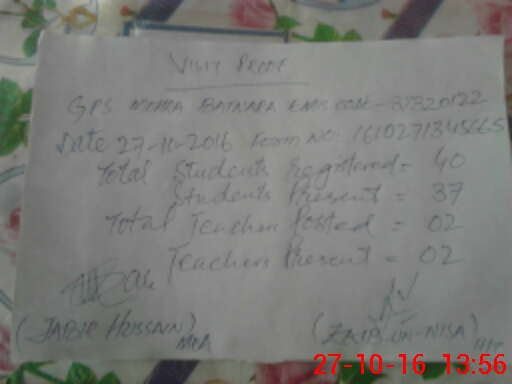 VISIT PROOF
GPS MOHRA BATNARA EMIS CODE - 37320122
Date 27-10-2016 Form NO: 1610271345665
Total Students Registered = 40
Students Present = 37
Total Teacher Posted = 02
Teacher Present = 02
(JABIR HUSSAIN) (ZAIB-UN-NISA)
MEA HT
27-10-16 13:56